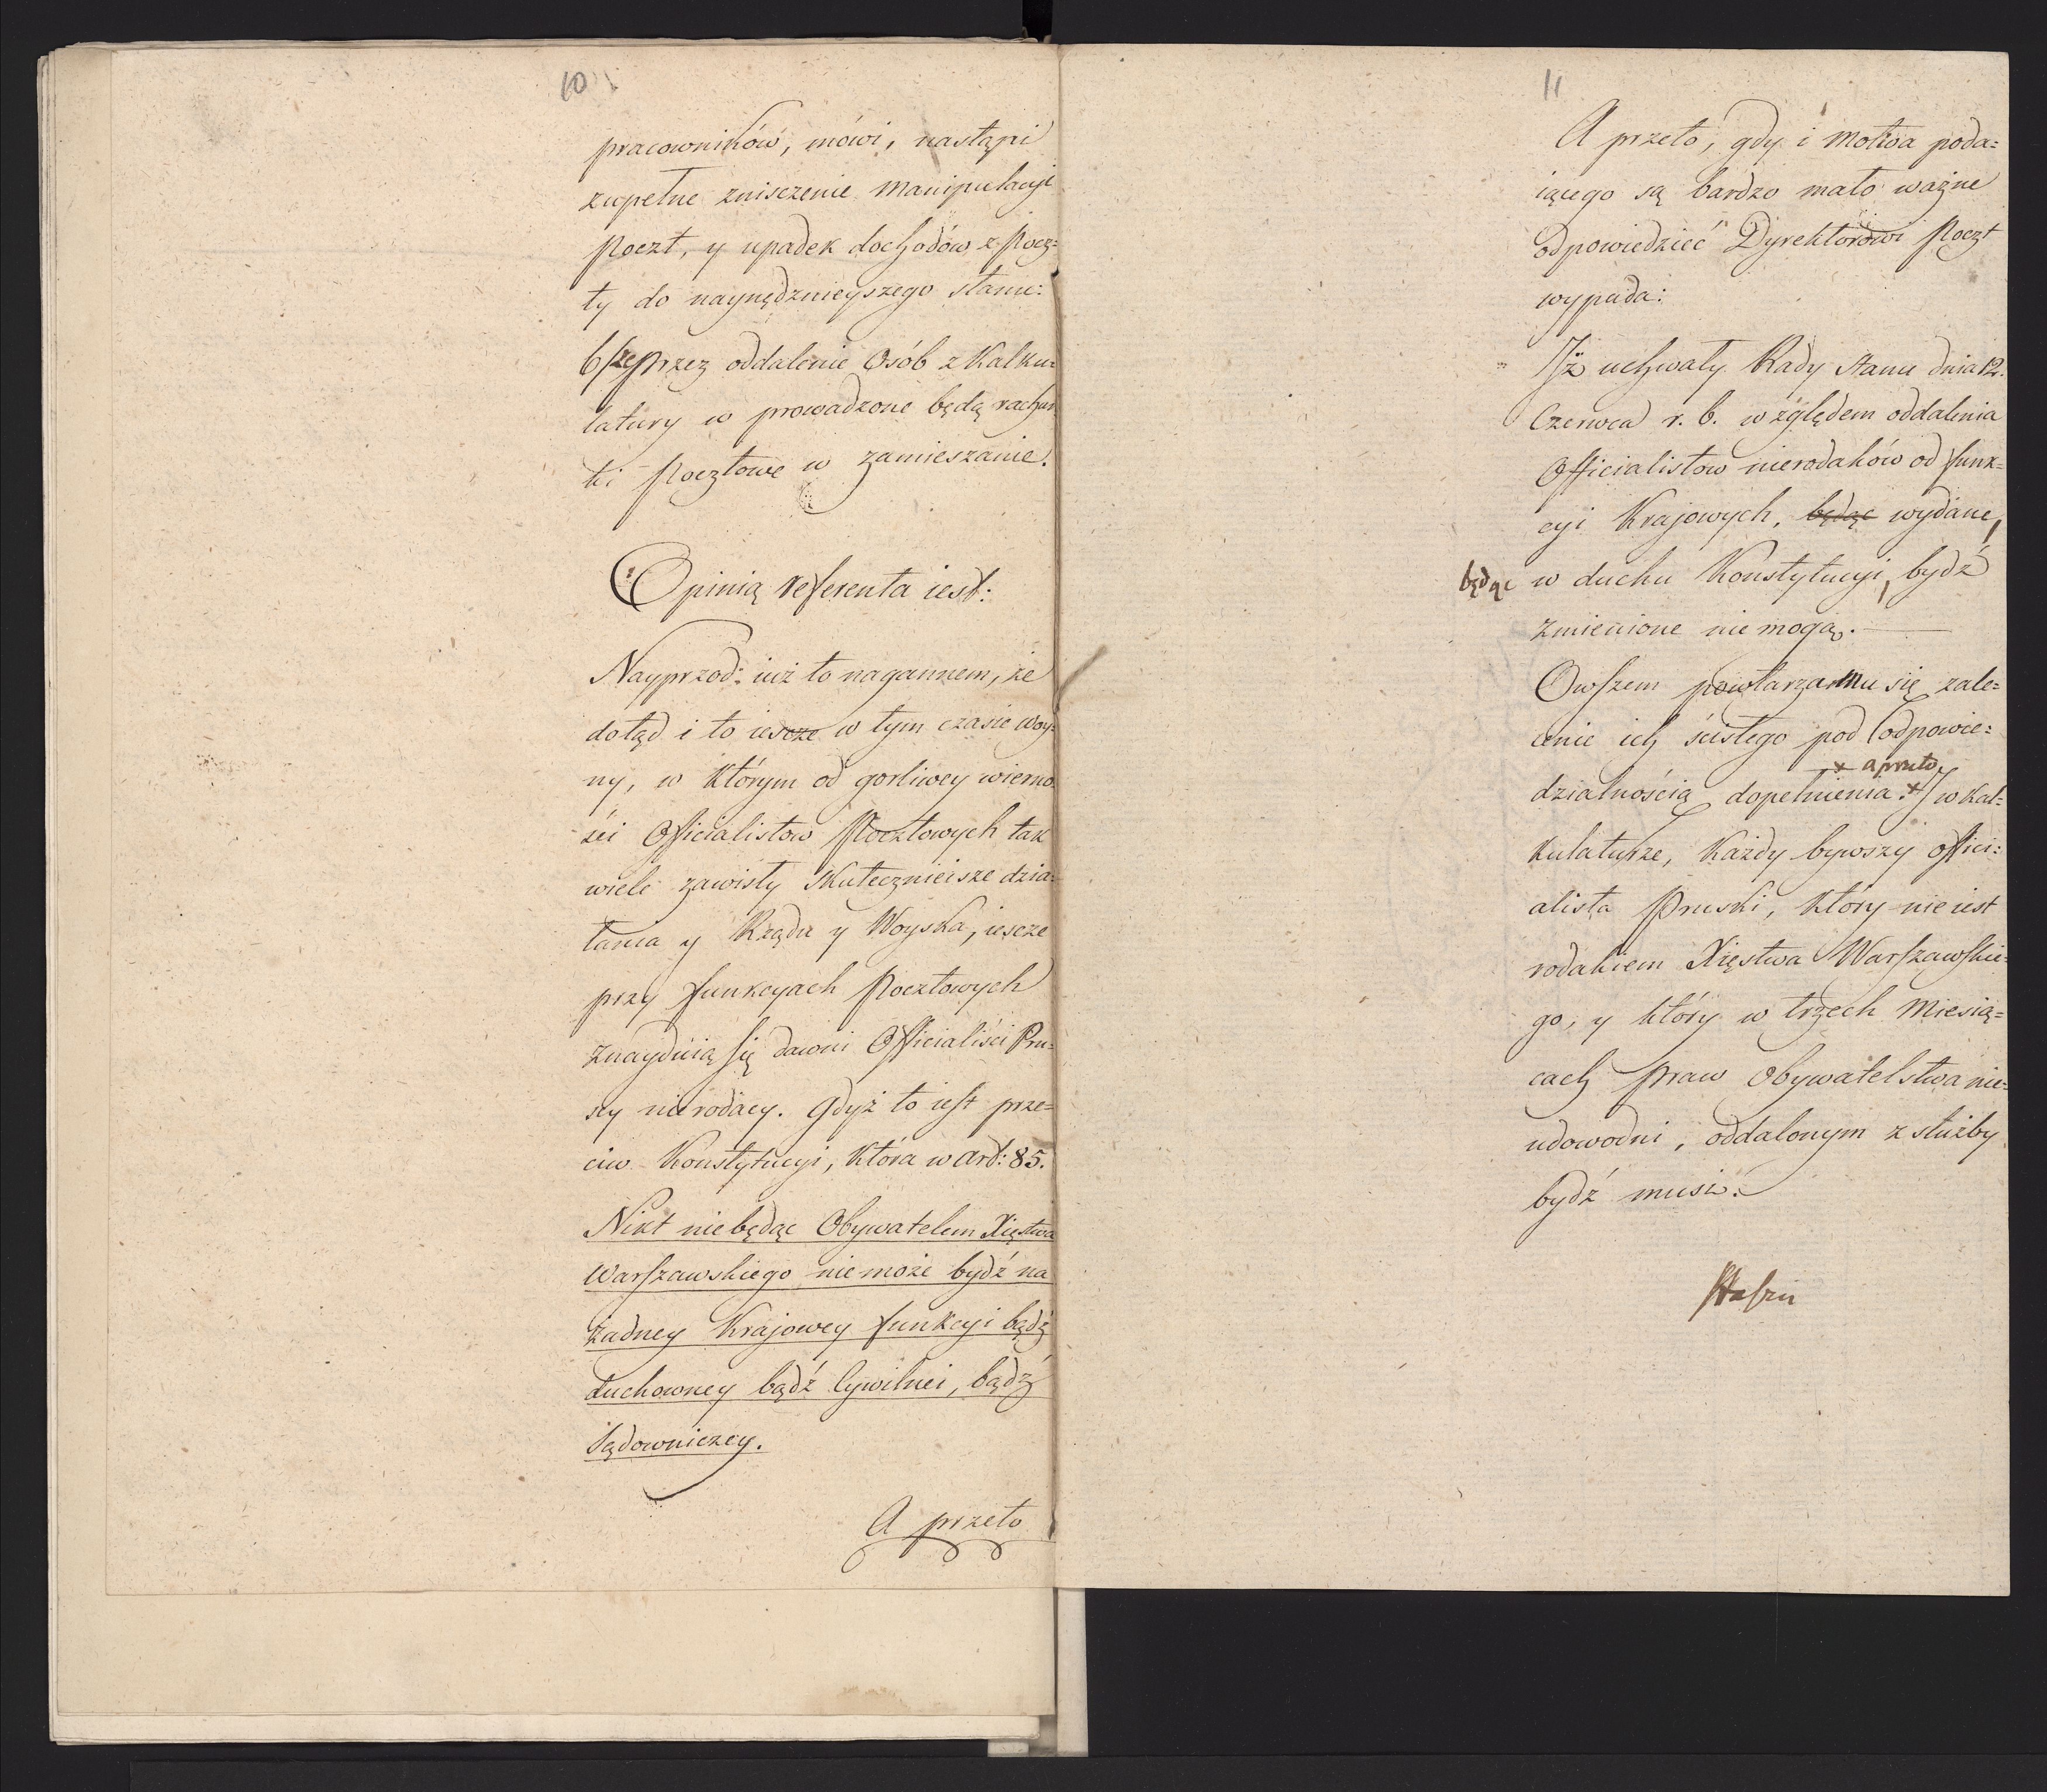 10
pracowników, mówi, nastąpi
zupełne znisczenie manipulacyi
Poczt, y upadek dochodów z Pocz=
ty do naynędznieyszego stanu:
6/że przez oddalenie Osób z Kalku=
latury w prowadzone będą rachun
ki Pocztowe w zamieszanie.
Opinią referenta iest:
Nayprzod: iuż to nagannem, że
dotąd i to iescze w tym czasie woy=
ny, w którym od gorliwey wierno=
ści Officialistow Pocztowych tak
wiele zawisły skutecznieisze dzia=
łania y Rządu y Woyska, iescze
przy funkcyach Pocztowych
znayduią się dawni Officialiści Pru=
scy nierodacy. Gdyż to iest prze=
ciw Konstytucyi, która w art: 85.
Nikt niebędąc Obywatelem Xięstwa
Warszawskiego niemoże bydź na
żadney Krajowey funkcyi bądź
duchowney bądź Cywilnei, bądź
Sądowniczey.
A przeto
11
A przeto, gdy i motiva poda=
iącego są bardzo mało ważne
odpowiedzieć Dyrektorowi Poczt
wypada:
Iż uchwały Rady Stanu dnia 12.
Czerwca r. b. względem oddalenia
Officialistow nierodaków od funk=
cyi Krajowych, będąc wydane,
będąc w duchu Konstytucyi, bydź
zmienione nie mogą.
Owszem powtarza mu się zale=
cenie ich ścisłego pod odpowie=
x a przeto
dzialnością dopełnienia. x w Kal=
kulaturze, Każdy bywszy offici=
alista Pruski, który nie iest
rodakiem Xięstwa Warszawskie=
go, y który w trzech Miesią=
cach praw Obywatelstwa nie=
udowodni, oddalonym z służby
bydź musi.